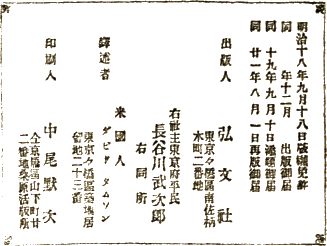 明治十八年九月十八日版權免許
同　年十二月　出版御届
同　十九年九月十日添題御届
同　廿一年八月一日再版御届
出版人　弘文社
東京々橋區南佐柄
木町二番地
右社主東京府平民
長谷川武次郎
右同所
米國人
譯述者　ダビッド タムソン
東京々橋區築地居
留地二十三番
印刷人　中尾黙次
仝京橋區山下町廿
二番地桑原活版所